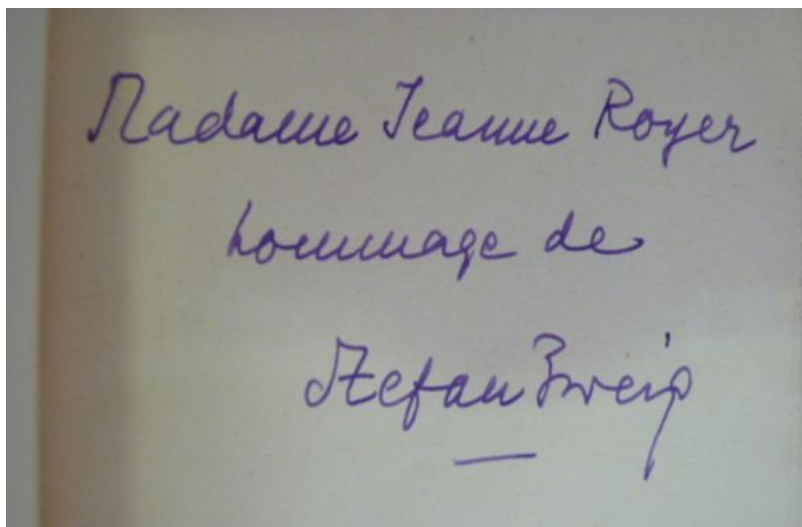 Madame Jeanne Royer
hommage de
Stefan Zweig